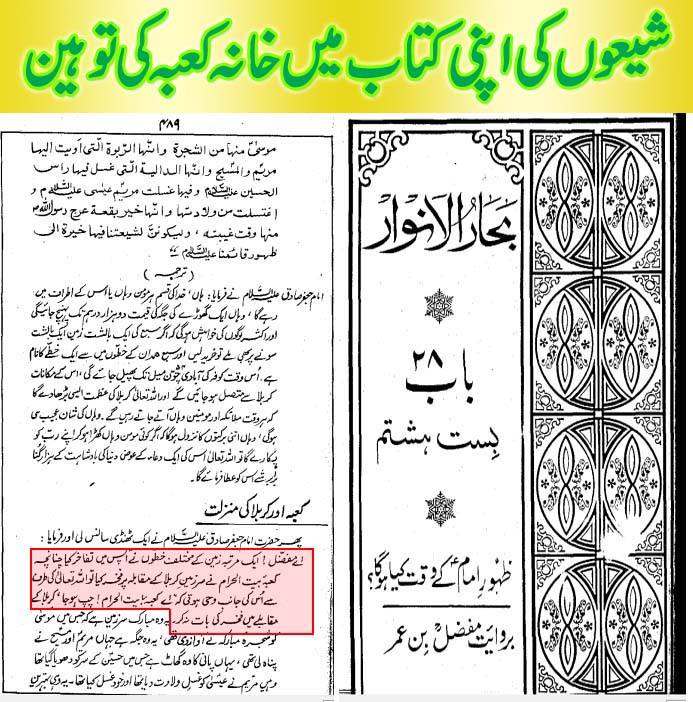 شیعوں کی اپنی کتاب میں خانہ کعبہ کی توہین
بحار الانوار
باب ۲۸
بست ہشتم
ظہور امامؑ کے وقت کیا ہوگا؟
بروایت مفضل بن عمر
۴۸۹
موسیٰ منها من الشجرة وانها الربوة التی أویت الیها
مریم والمسیح وانها الدالیة التی غسل فیها راس
الحسین علیہ السلام وفیها غسلت مریم عیسٰی علیہ السلام و
اغتسلت من ولادتها وانها خیر بقعة عرج رسول اللہ
منها وقت غیبته، ولیکونن لشیعتنا فیها خیرة الی
ظهور قائمنا علیہ السلام
(ترجمہ)
امام جعفر صادق علیہ السلام نے فرمایا: ہاں، خدا کی قسم ہر مومن وہاں یا اس کے اطراف میں
رہے گا، وہاں ایک گھوڑے کی جگہ کی قیمت دو ہزار درہم تک پہنچ جائیگی
اور اکثر لوگوں کی خواہش ہوگی کہ اگر سبع کی ایک بالشت زمین ایک بالشت
سونے پر بھی ملے تو خرید لیں اور سبع ہمدان کے خطوں میں سے ایک خطے کا نام
ہے۔ اس وقت کوفہ کی آبادی چون میل تک پھیل جائے گی، اس کے مکانات
کربلا سے متصل ہو جائیں گے اور اللہ تعالیٰ کربلا کی عظمت ایسی بڑھا دے گا
کہ ہر وقت ملائکہ اور مومنین وہاں آتے جاتے رہیں گے۔ وہاں کی شان عجیب سی
ہوگی، وہاں اتنی برکتوں کا نزول ہوگا کہ اگر کوئی مومن وہاں کھڑا ہو کر اپنے رب کو
پکارے گا تو اللہ تعالیٰ اس کی ایک دعا کے عوض دنیا کی بادشاہت کے ہزار گنا
بڑے شے اس کو عطا فرمائے گا۔
کعبہ اور کربلا کی منزلت
پھر حضرت امام جعفر صادق علیہ السلام نے ایک ٹھنڈی سانس لی اور فرمایا:
اے مفضل! ایک مرتبہ زمین کے مختلف خطوں نے آپس میں تفاخر کیا چنانچہ
کعبہ بیت الحرام نے سرزمین کربلا کے مقابلہ پر فخر کیا تو اللہ تعالیٰ کی طرف
سے اس کی جانب وحی ہوئی کہ "اے کعبہ بیت الحرام! چپ ہو جا، کربلا کے
مقابلے میں فخر کی بات نہ کر۔ یہ وہ مبارک سرزمین ہے کہ جس میں موسیٰ
کو شجرہ مبارکہ نے آواز دی تھی، یہ وہ جگہ ہے جہاں مریم اور مسیح نے
پناہ لی تھی، یہاں پانی کا وہ گھاٹ ہے جس میں حسین کے سر کو دھویا گیا تھا
وہیں مریم نے عیسیٰ کو غسل ولادت دیا تھا اور خود غسل کیا تھا۔ یہ وہی بہترین